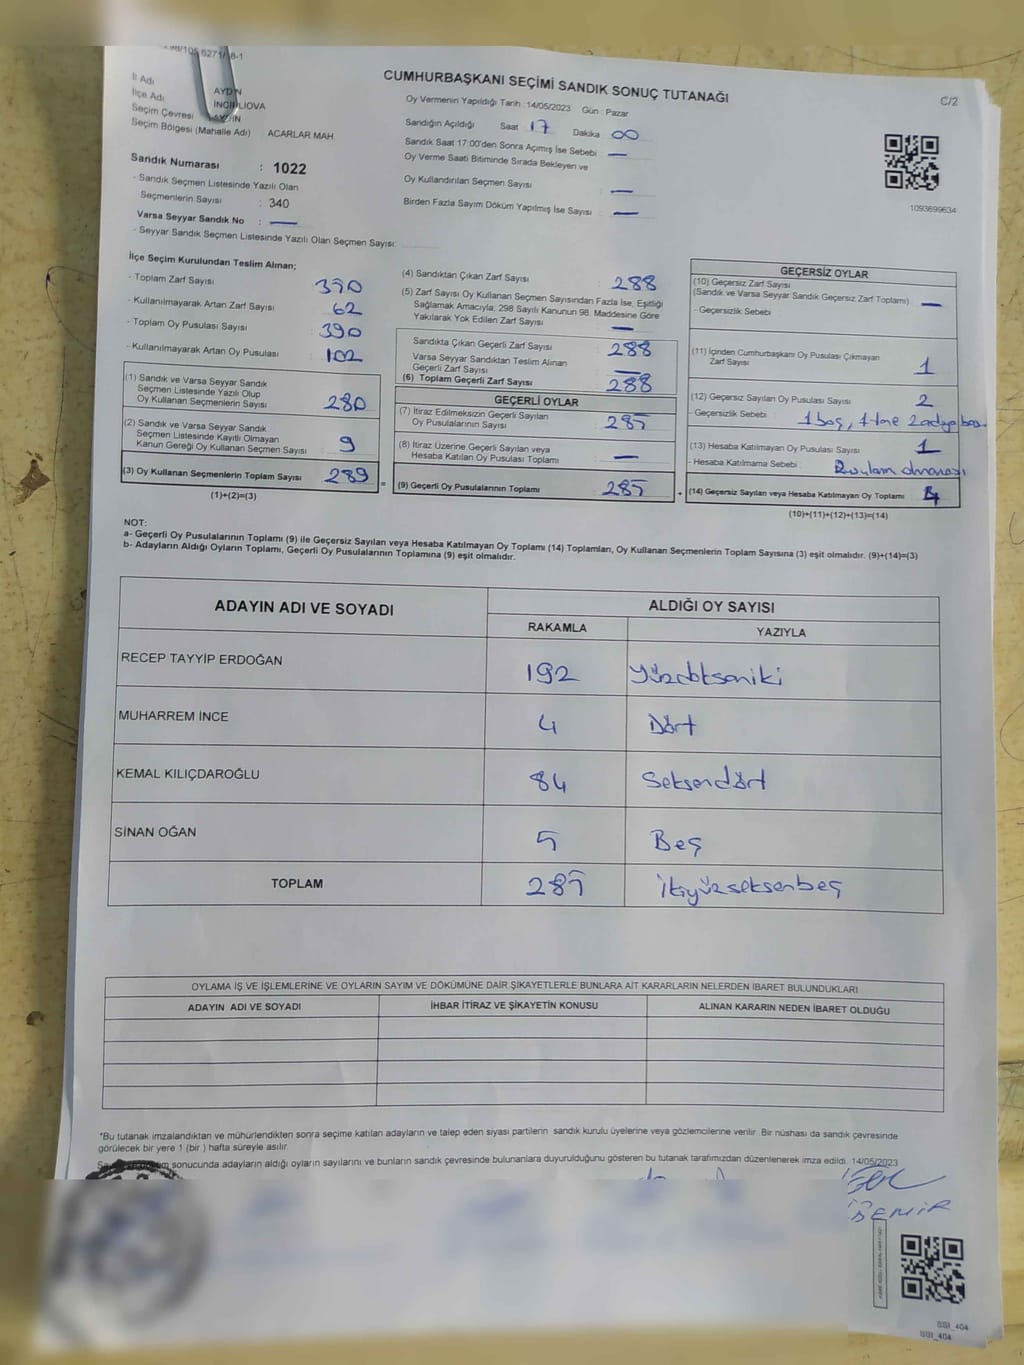 CUMHURBAŞKANI SEÇİMİ SANDIK SONUÇ TUTANAĞI
C/2
İl Adı AYDIN
İlçe Adı İNCİRLİOVA
Seçim Çevresi AYDIN
Seçim Bölgesi (Mahalle Adı) ACARLAR MAH.
Sandık Numarası : 1022
- Sandık Seçmen Listesinde Yazılı Olan
Seçmenlerin Sayısı : 340
Varsa Seyyar Sandık No : —
- Seyyar Sandık Seçmen Listesinde Yazılı Olan Seçmen Sayısı:
Oy Vermenin Yapıldığı Tarih :14/05/2023 Gün : Pazar
Sandığın Açıldığı Saat 17 Dakika 00
Sandık Saat 17:00'den Sonra Açımış İse Sebebi —
Oy Verme Saati Bitiminde Sırada Bekleyen ve
Oy Kullandırılan Seçmen Sayısı : —
Birden Fazla Sayım Döküm Yapılmış İse Sayısı : —
1093699634
İlçe Seçim Kurulundan Teslim Alınan;
- Toplam Zarf Sayısı : 350
- Kullanılmayarak Artan Zarf Sayısı : 62
- Toplam Oy Pusulası Sayısı : 390
- Kullanılmayarak Artan Oy Pusulası : 102
(1) Sandık ve Varsa Seyyar Sandık
Seçmen Listesinde Yazılı Olup
Oy Kullanan Seçmenlerin Sayısı : 280
(2) Sandık ve Varsa Seyyar Sandık
Seçmen Listesinde Kayıtlı Olmayan
Kanun Gereği Oy Kullanan Seçmen Sayısı : 9
(3) Oy Kullanan Seçmenlerin Toplam Sayısı : 289
(1)+(2)=(3)
(4) Sandıktan Çıkan Zarf Sayısı : 288
(5) Zarf Sayısı Oy Kullanan Seçmen Sayısından Fazla İse, Eşitliği
Sağlamak Amacıyla, 298 Sayılı Kanunun 98. Maddesine Göre
Yakılarak Yok Edilen Zarf Sayısı : —
Sandıkta Çıkan Geçerli Zarf Sayısı : 288
Varsa Seyyar Sandıktan Teslim Alınan
Geçerli Zarf Sayısı : —
(6) Toplam Geçerli Zarf Sayısı : 288
GEÇERLİ OYLAR
(7) İtiraz Edilmeksizin Geçerli Sayılan
Oy Pusulalarının Sayısı : 285
(8) İtiraz Üzerine Geçerli Sayılan veya
Hesaba Katılan Oy Pusulası Toplamı : —
(9) Geçerli Oy Pusulalarının Toplamı : 285
GEÇERSİZ OYLAR
(10) Geçersiz Zarf Sayısı
(Sandık ve Varsa Seyyar Sandık Geçersiz Zarf Toplamı) —
- Geçersizlik Sebebi
(11) İçinden Cumhurbaşkanı Oy Pusulası Çıkmayan
Zarf Sayısı : 1
(12) Geçersiz Sayılan Oy Pusulası Sayısı : 2
- Geçersizlik Sebebi : 1 boş, 1 tane 2 adya bas.
(13) Hesaba Katılmayan Oy Pusulası Sayısı : 1
- Hesaba Katılmama Sebebi : olmaması
(14) Geçersiz Sayılan veya Hesaba Katılmayan Oy Toplamı : 4
(10)+(11)+(12)+(13)=(14)
NOT:
a- Geçerli Oy Pusulalarının Toplamı (9) ile Geçersiz Sayılan veya Hesaba Katılmayan Oy Toplamı (14) Toplamları, Oy Kullanan Seçmenlerin Toplam Sayısına (3) eşit olmalıdır. (9)+(14)=(3)
b- Adayların Aldığı Oyların Toplamı, Geçerli Oy Pusulalarının Toplamına (9) eşit olmalıdır.
ADAYIN ADI VE SOYADI ALDIĞI OY SAYISI
RAKAMLA YAZIYLA
RECEP TAYYİP ERDOĞAN 192 Yüzdoksaniki
MUHARREM İNCE 4 Dört
KEMAL KILIÇDAROĞLU 84 Seksendört
SİNAN OĞAN 5 Beş
TOPLAM 285 ikiyüzseksenbeş
OYLAMA İŞ VE İŞLEMLERİNE VE OYLARIN SAYIM VE DÖKÜMÜNE DAİR ŞİKAYETLERLE BUNLARA AİT KARARLARIN NELERDEN İBARET BULUNDUKLARI
ADAYIN ADI VE SOYADI İHBAR İTİRAZ VE ŞİKAYETİN KONUSU ALINAN KARARIN NEDEN İBARET OLDUĞU
*Bu tutanak imzalandıktan ve mühürlendikten sonra seçime katılan adayların ve talep eden siyasi partilerin sandık kurulu üyelerine veya gözlemcilerine verilir. Bir nüshası da sandık çevresinde
görülecek bir yere 1 (bir ) hafta süreyle asılır.
sonucunda adayların aldığı oyların sayılarını ve bunların sandık çevresinde bulunanlara duyurulduğunu gösteren bu tutanak tarafımızdan düzenlenerek imza edildi. 14/05/2023
SSI_404
SSI_404